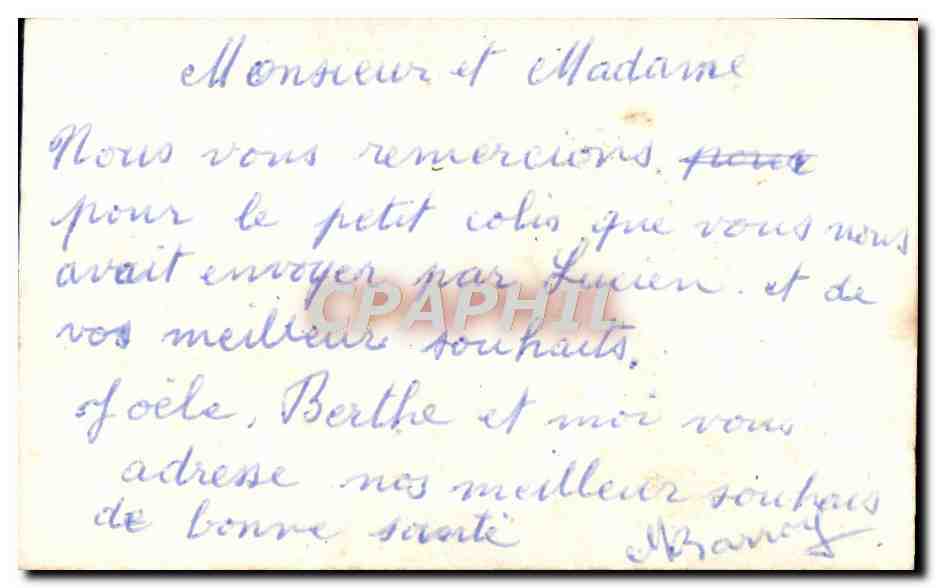 Monsieur et Madame
Nous vous remercions. pour
pour le petit colis que vous nous
avait envoyer par Lucien. et de
vos meilleur souhaits.
Joële, Berthe et moi vous
adresse nos meilleur souhais
de bonne santé
CPAPHIL